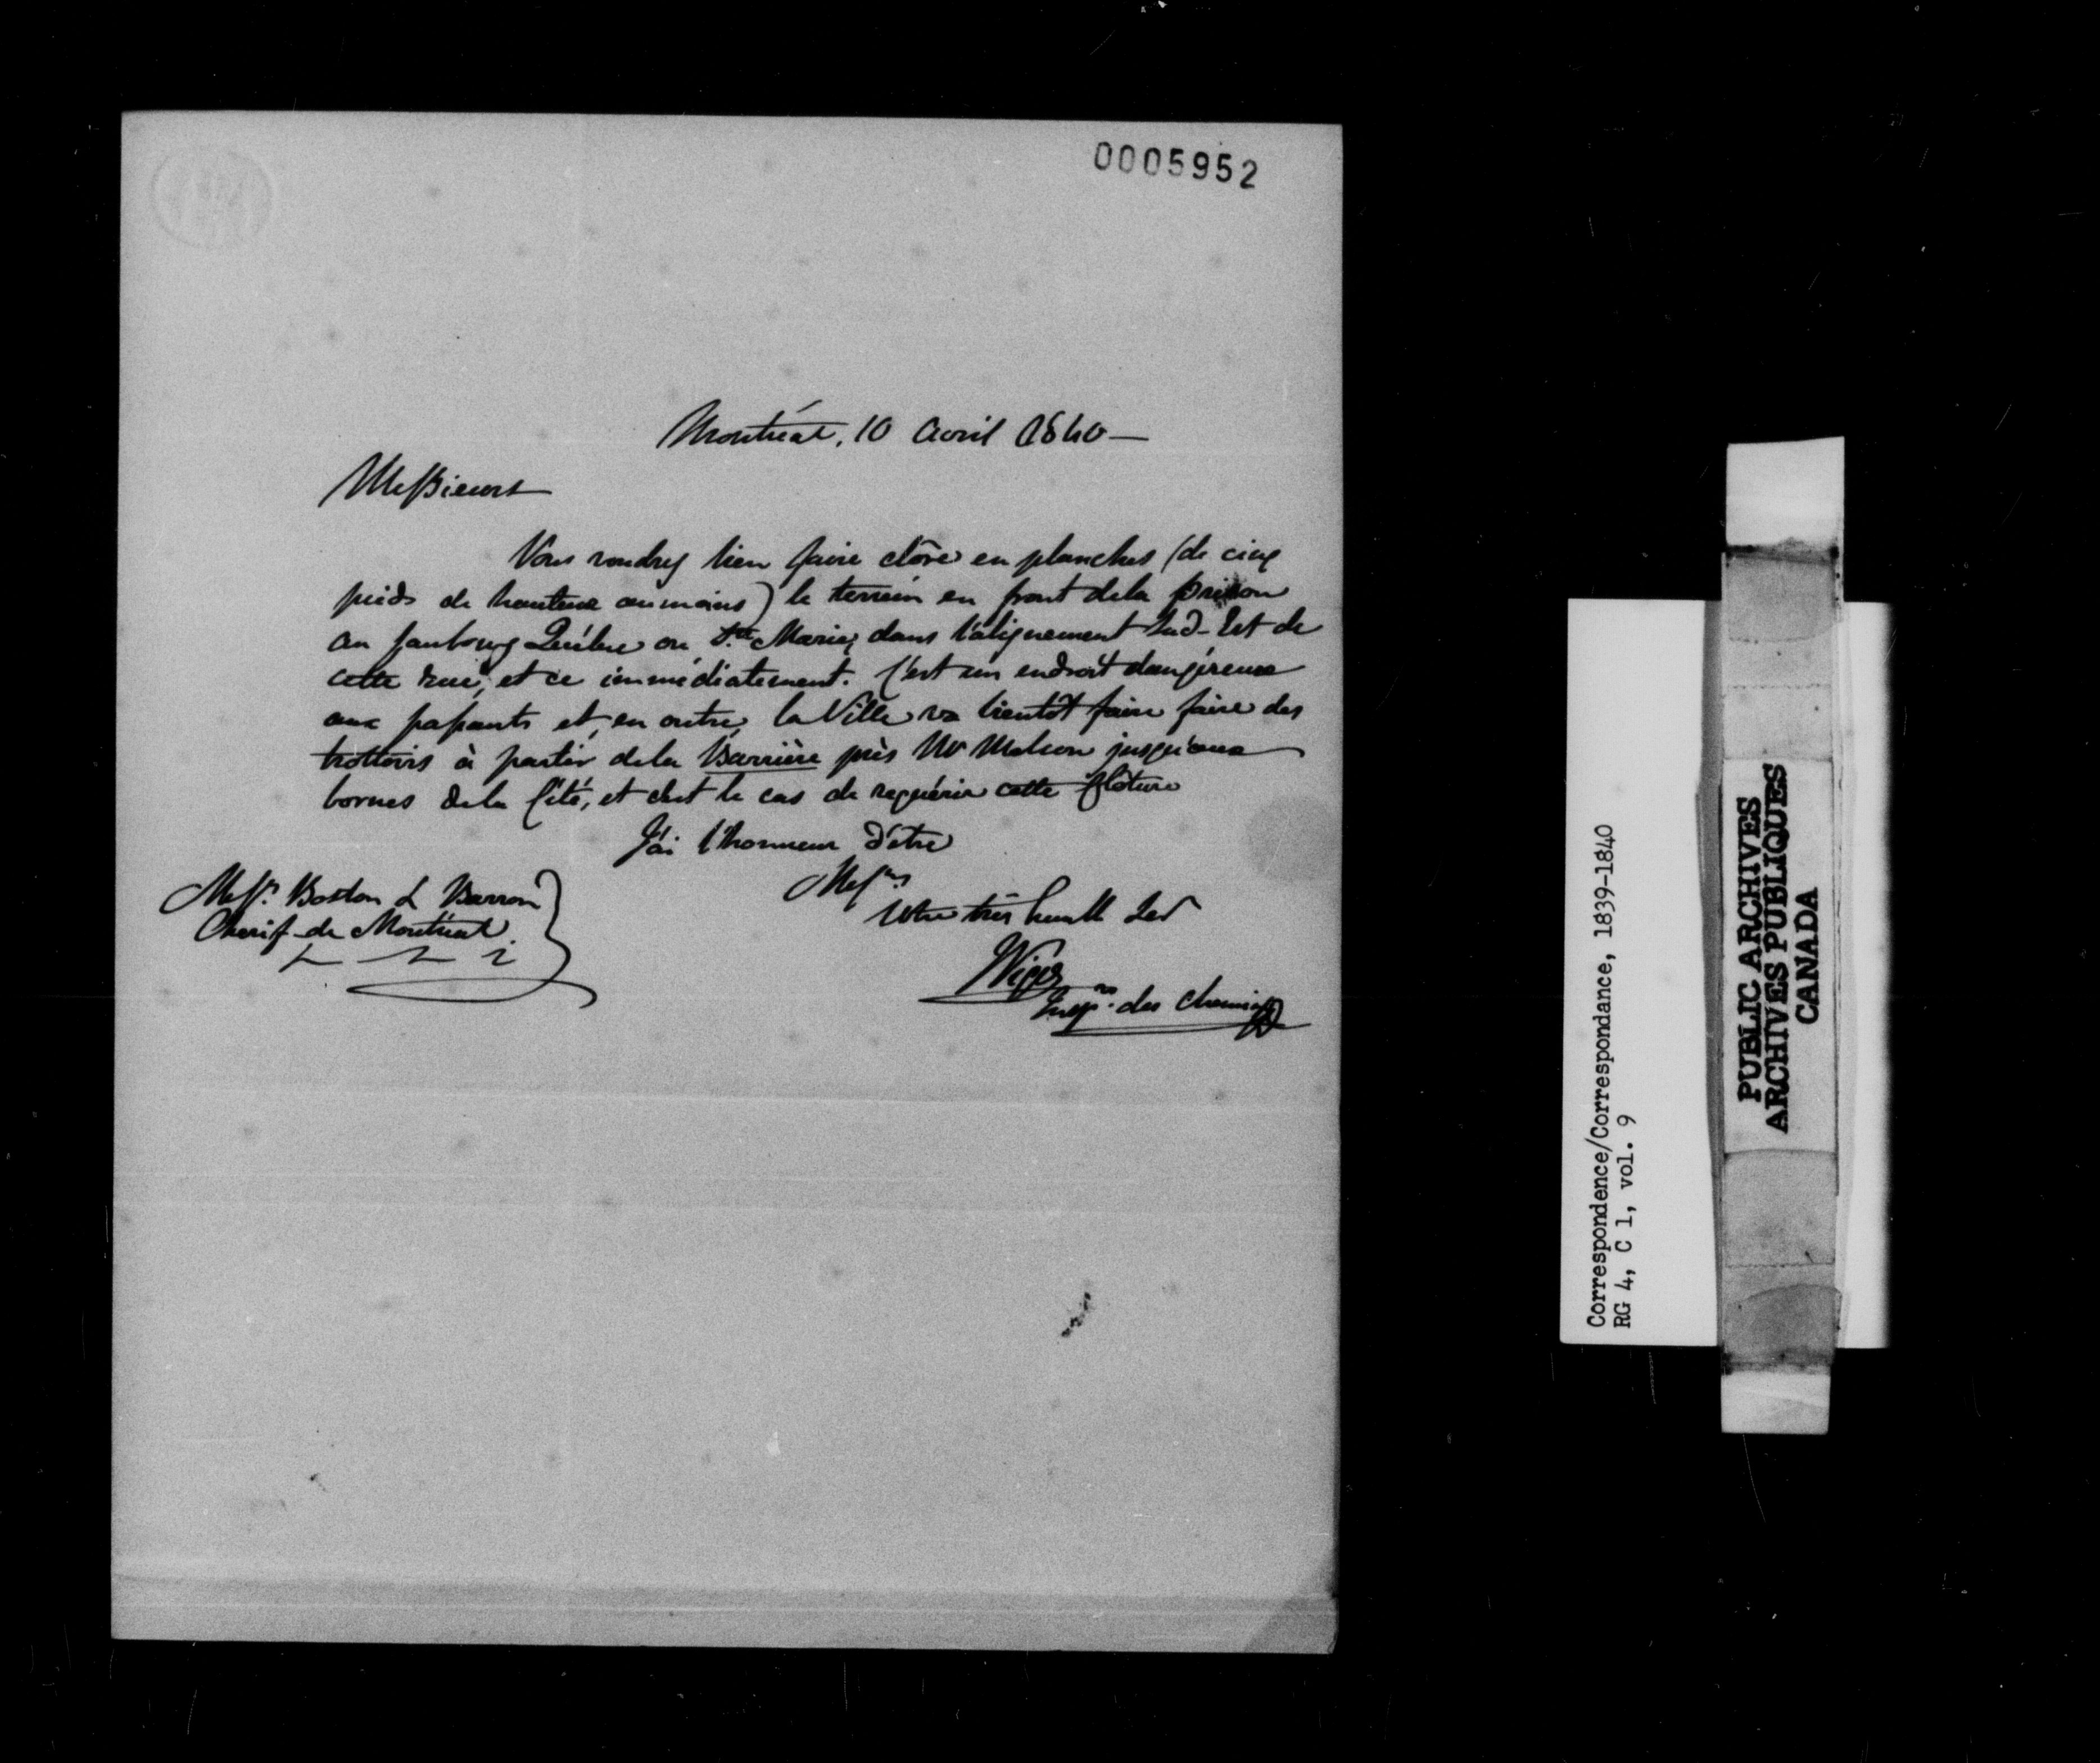 0005952
Montréal, 10 Avril 1840 —
Messieurs
Vous voudrez bien faire clôre en planches (de cinq
pieds de hauteur au moins) le terrein en front de la prison
au faubourg Québec ou Ste Marie, dans l'alignement Sud-Est de
cette rue, et ce immédiatement. C'est un endroit dangéreux
aux passants et, en outre, la Ville va bientôt faire faire des
trottoirs à partir de la Barrière près Mr Molson jusqu'aux
bornes de la Cité, et c'est le cas de requérir cette clôture
J'ai l'honneur d'être
Messrs
Votre très humble Ser
Messrs Boston &
Chérif de Montréal
Insp. des chemins
Correspondence/Correspondance, 1839-1840
RG 4, C 1, vol. 9
PUBLIC ARCHIVES
ARCHIVES PUBLIQUES
CANADA